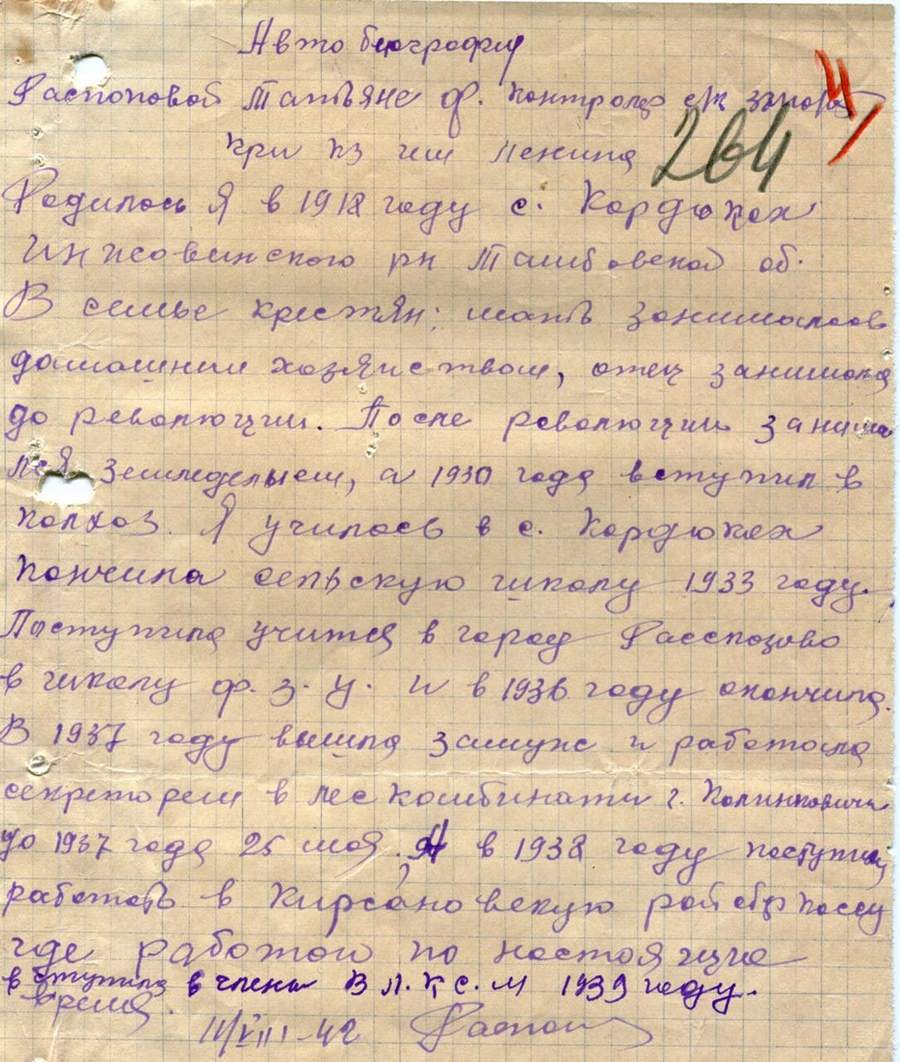 Автобиография
Распоповой Татьяне Ф. контролер
при КЗ им Ленина
264
Родилась Я в 1918 году с. Кордюках
Инжавинского рн Тамбовской об.
В семье крестян: мать занималась
домашним хозяиством, отец занимался
до революции. После революции занима
лся земледельем, а 1930 года вступил в
колхоз. Я училась в с. Кордюках
кончила сельскую школу 1933 году.
Поступила учится в город Рассказово
в школу ф.з.у. и в 1936 году окончила.
В 1937 году вышла замуж и работала
секретарем в лес комбинати г.
до 1937 года 25 мая, А в 1938 году поступила
работать в Кирсановскую рай сбер кассу
где работаю по настояще
время.
вступила в члены В Л.К С.М 1939 году.
11/VIII-42 Распоп